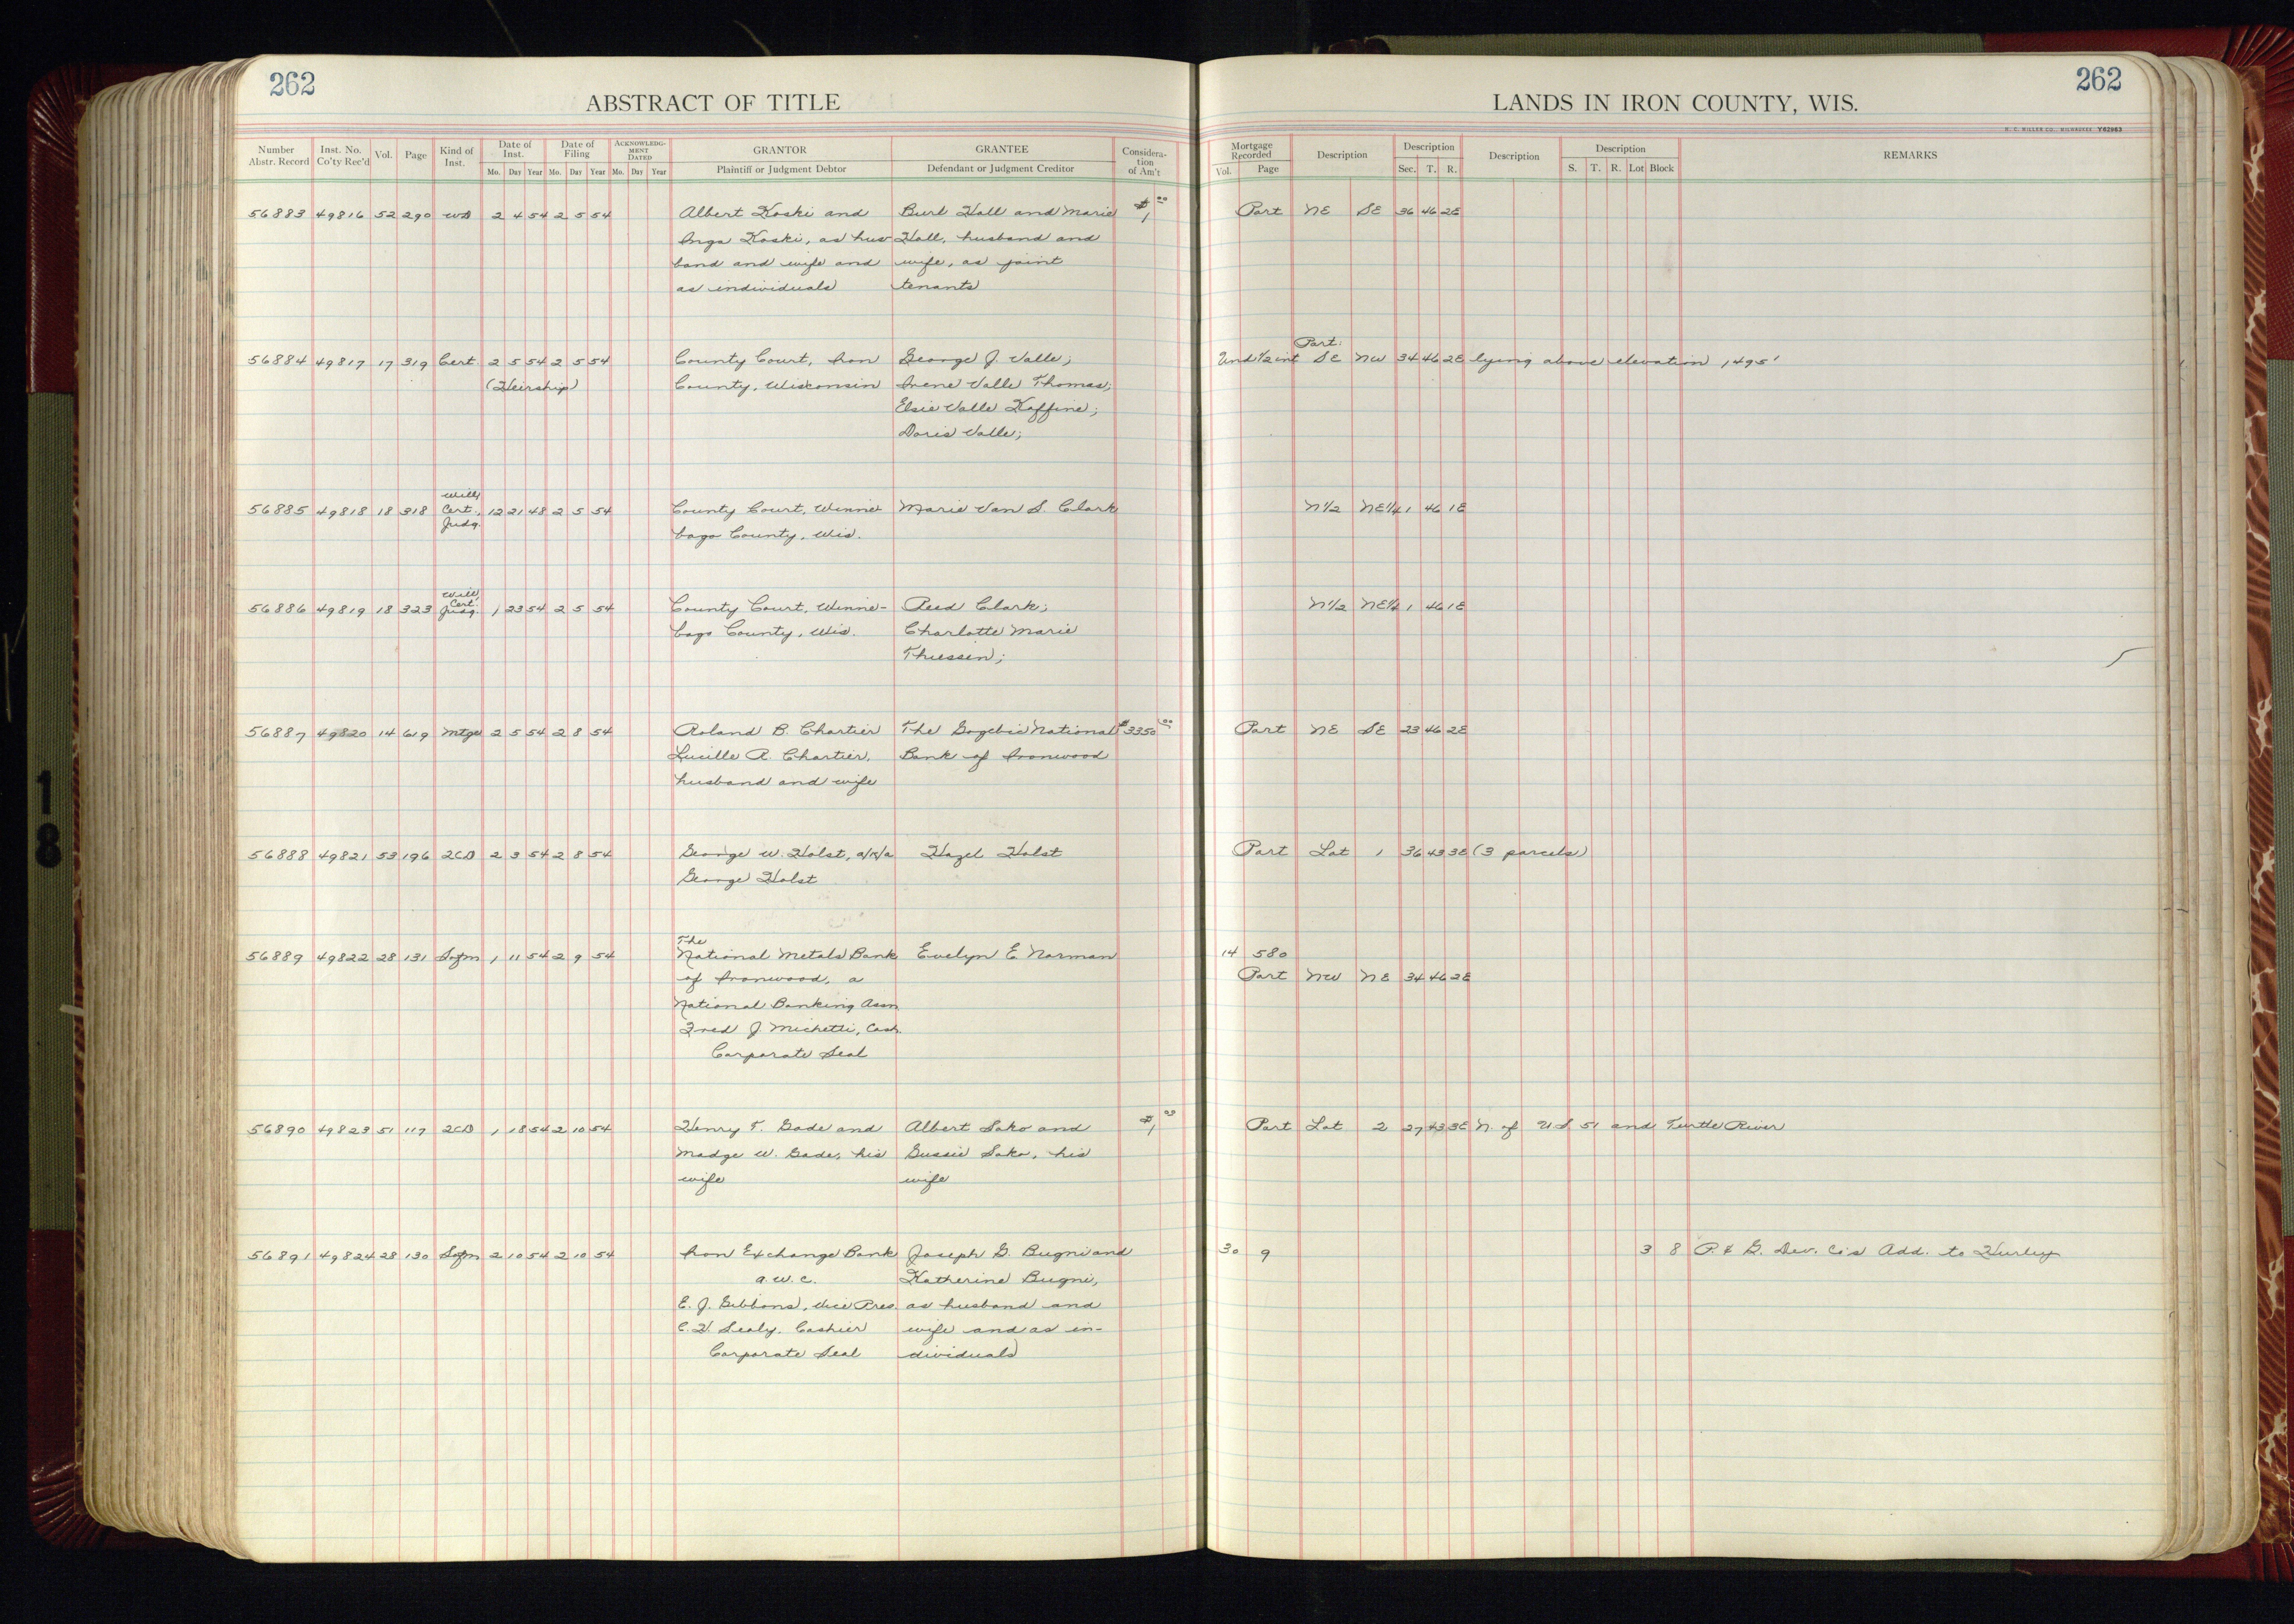 262
ABSTRACT OF TITLE
LANDS IN IRON COUNTY, WIS.
262
H. C. MILLER CO. MILWAUKEE Y62963
Number Abstr. Record | Inst. No. Co'ty Rec'd | Vol. | Page | Kind of Inst. | Date of Inst. Mo. Day Year | Date of Filing Mo. Day Year | ACKNOWLEDGMENT DATED Mo. Day Year | GRANTOR Plaintiff or Judgment Debtor | GRANTEE Defendant or Judgment Creditor | Consideration of Am't | Mortgage Recorded Vol. Page | Description | Description Sec. T. R. | Description | Description S. T. R. Lot Block | REMARKS
56883 49816 52 290 WD 2 4 54 2 5 54 Albert Koski and Burt Hall and Marie $1 00 Part NE SE 36 46 2E
Inga Koski, as hus- Hall, husband and
band and wife and wife, as joint
as individuals tenants
Part
56884 49817 17 319 Cert. 2 5 54 2 5 54 County Court, Iron George J. Valle; Und 1/2 int SE NW 34 46 2E lying above elevation 1495'
(Heirship) County, Wisconsin Irene Valle Thomas;
Elsie Valle Kaffine;
Doris Valle;
Will,
56885 49818 18 318 Cert., 12 21 48 2 5 54 County Court, Winne- Marie Van S. Clark N1/2 NE1/4 1 46 1E
Judg. bago County, Wis.
Will,
Cert.
56886 49819 18 323 Judg. 1 23 54 2 5 54 County Court, Winne- Reed Clark; N1/2 NE1/4 1 46 1E
bago County, Wis. Charlotte Marie
Thiessen;
56887 49820 14 619 Mtge 2 5 54 2 8 54 Roland B. Chartier The Gogebic National $3350 00 Part NE SE 23 46 2E
Lucille A. Chartier, Bank of Ironwood
husband and wife
56888 49821 53 196 2CD 2 3 54 2 8 54 George W. Holst, a/k/a Hazel Holst Part Lot 1 36 43 3E (3 parcels)
George Holst
The
56889 49822 28 131 Satfn 1 11 54 2 9 54 National Metals Bank Evelyn E. Norman 14 580
of Ironwood, a Part NW NE 34 46 2E
National Banking Assn.
Fred J. Michetti, Cash.
Corporate Seal
56890 49823 51 117 2CD 1 18 54 2 10 54 Henry T. Gade and Albert Sako and $1 00 Part Lot 2 27 43 3E N. of US 51 and Turtle River
Madge W. Gade, his Gussie Sako, his
wife wife
56891 49824 28 130 Satfn 2 10 54 2 10 54 Iron Exchange Bank Joseph G. Bugni and 30 9 3 8 P. & G. Dev. Co's Add. to Hurley
a.w.c. Katherine Bugni,
E. J. Gibbons, Vice Pres. as husband and
C. H. Sealy, Cashier wife and as in-
Corporate Seal dividuals
18